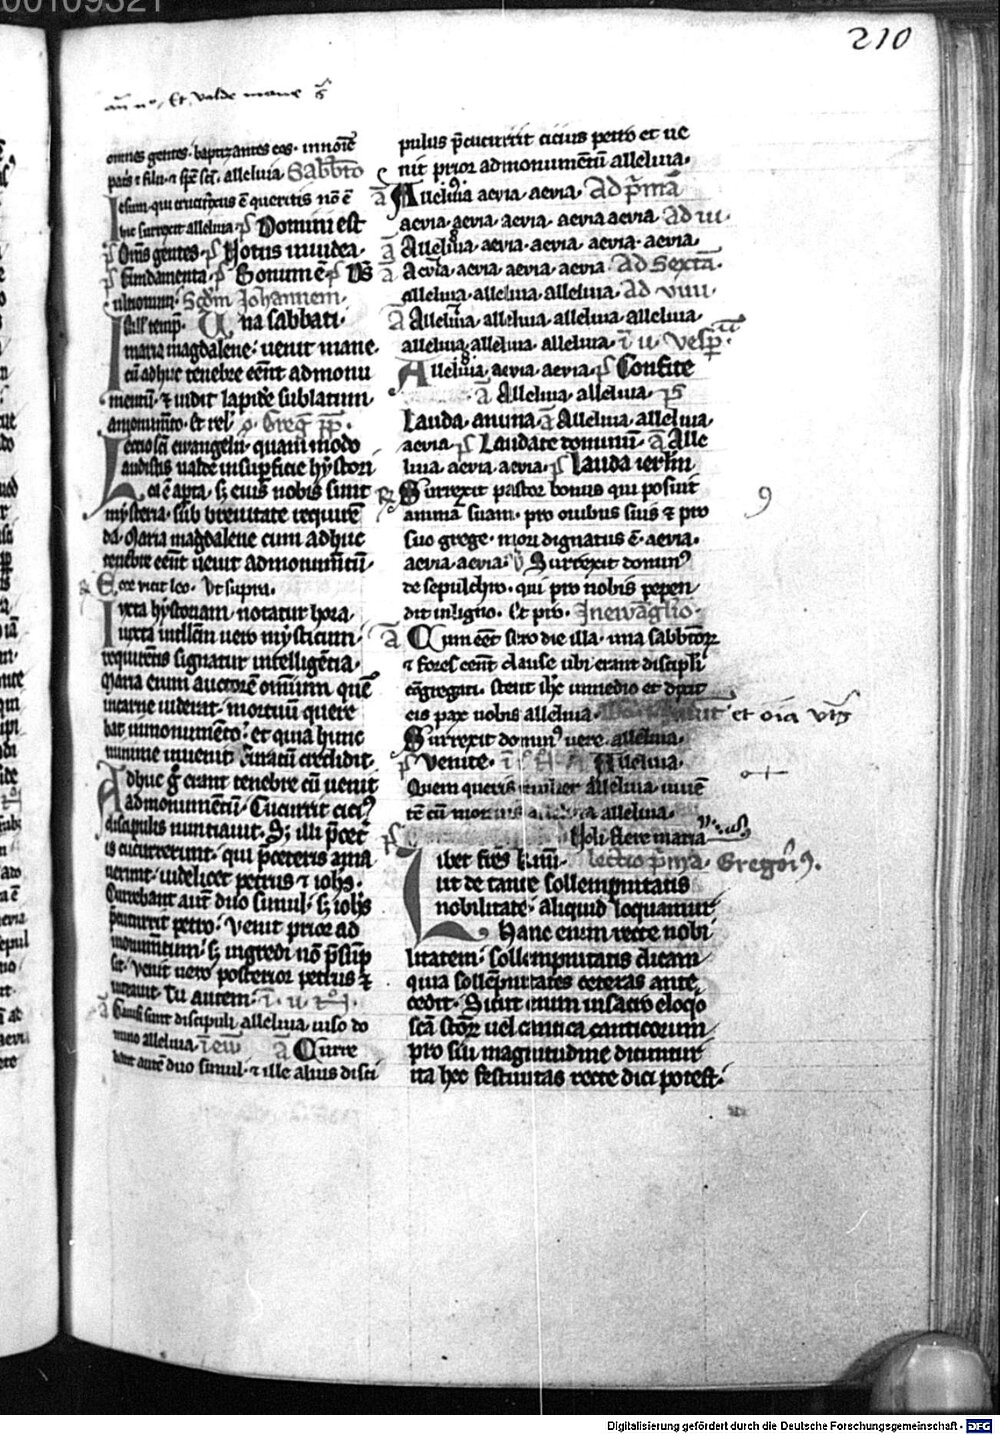 210
Et valde mane
omnes gentes baptizantes eos. innoīe
pat̄s ⁊ filii ⁊ sp̄s sc̄i. alleluia Sabb̄to
Iesum qui crucifixus ē queritis nō ē
hic surrexit alleluia. p̄s Domini est
p̄s Om̄s gentes. p̄s Notus iniudea.
p̄s Fundamenta. p̄s Bonum ē. p̄s D̄s
ultionum. Scd̄m Johannem.
Una sabbati.
maria magdalene: uenit mane.
cū adhuc tenebre eēnt ad monu
mentū. ⁊ uidit lapidē sublatum
amonumīto. Et rel. Greg̅ pp̅.
Lectio sc̄i ewangelii. quam modo
audistis ualde insupficie hystori
ca ē apta. sꝫ eius nobis sunt
mysteria. sub breuitate requirē
da. Maria magdalene cum adhuc
tenebre eēnt uenit admonumtū.
Ecce uicit leo. Ut supra.
Iuxta hystoriam. notatur hora.
iuxta intllcm̄ uero mysticum.
requirentis signatur intelligētia.
Maria enim auctorē omnium quē
incarne uiderat. mortuū quere
bat inmonumento: et quia hunc
minime inuenit. furatū credidit.
Adhuc g̊ erant tenebre cū uenit
admonumētū. Cucurrit citiꝰ
discipulis nuntiauit. Sꝫ illi p̄cet̄
is cucurrerunt. qui p̄ceteris ama
uerunt. uidelicet petrus ⁊ ioh̄s.
Currebant aut̄ duo simul. sꝫ ioh̄s
p̄cucurrit petro. Venit prior ad
monumētum. sꝫ ingredi nō p̄sūp
sit. Venit uero posterior petrus ⁊
intrauit. Tu autem.
Gauisi sunt discipuli alleluia. uiso do
mino alleluia. ā Curre
bant autē duo simul. ⁊ ille alius disci
pulus p̄cucurrit cicius petro et ue
nit prior admonumētū alleluia.
ā Alleluia aeuia. aeuia. Ad p̄mā
aeuia. aeuia. aeuia. aeuia aeuia. Ad iii.
ā Alleluia. aeuia. aeuia. aeuia. aeuia.
ā Aeuia. aeuia. aeuia. aeuia. Ad Sextā.
alleluia. alleluia. alleluia. Ad viiii.
ā Alleluia. alleluia. alleluia. alleluia.
alleluia. alleluia. alleluia. ī ii. Vesp̄.
Alleluia. aeuia. aeuia. p̄s Confite
ā Alleluia. alleluia. p̄s
Lauda. anima. ā Alleluia. alleluia.
aeuia. p̄s Laudate dominū. ā Alle
luia. aeuia. aeuia. p̄s Lauda ierl̄m.
℟ Surrexit pastor bonus qui posuit
animā suam. pro ouibus suis ⁊ pro
suo grege. mori dignatus ē. aeuia.
aeuia. aeuia. ℣ Surrexit dominꝰ
de sepulchro. qui pro nobis pepen
dit inligno. Et pro. Inewāglio.
ā Cum eēt sero die illa. una sabbatoꝝ
⁊ fores eēnt clause ubi erant discipli
cōgregati. Stetit ih̄c inmedio et dixit
eis pax nobis alleluia. et oīa
Surrexit dominꝰ uere. alleluia.
p̄s Venite. Alleluia.
Quem queris mulier alleluia. uiuē
tē cū mortuis alleluia alleluia.
Noli flere maria
Libet frēs k̄mi. lectio p̄ma. Gregorī.
ut de tante sollempnitatis
nobilitate. aliquid loquamur.
Hanc enim recte nobi
litatem. sollempnitatis dicam
quia sollēpnitates ceteras ante
cedit. Sicut enim insacro eloq̊o
sc̄a sc̄oꝝ uel cantica canticorum
pro sui magnitudine dicuntur
ita hec festiuitas recte dici potest.
Digitalisierung gefördert durch die Deutsche Forschungsgemeinschaft - DFG